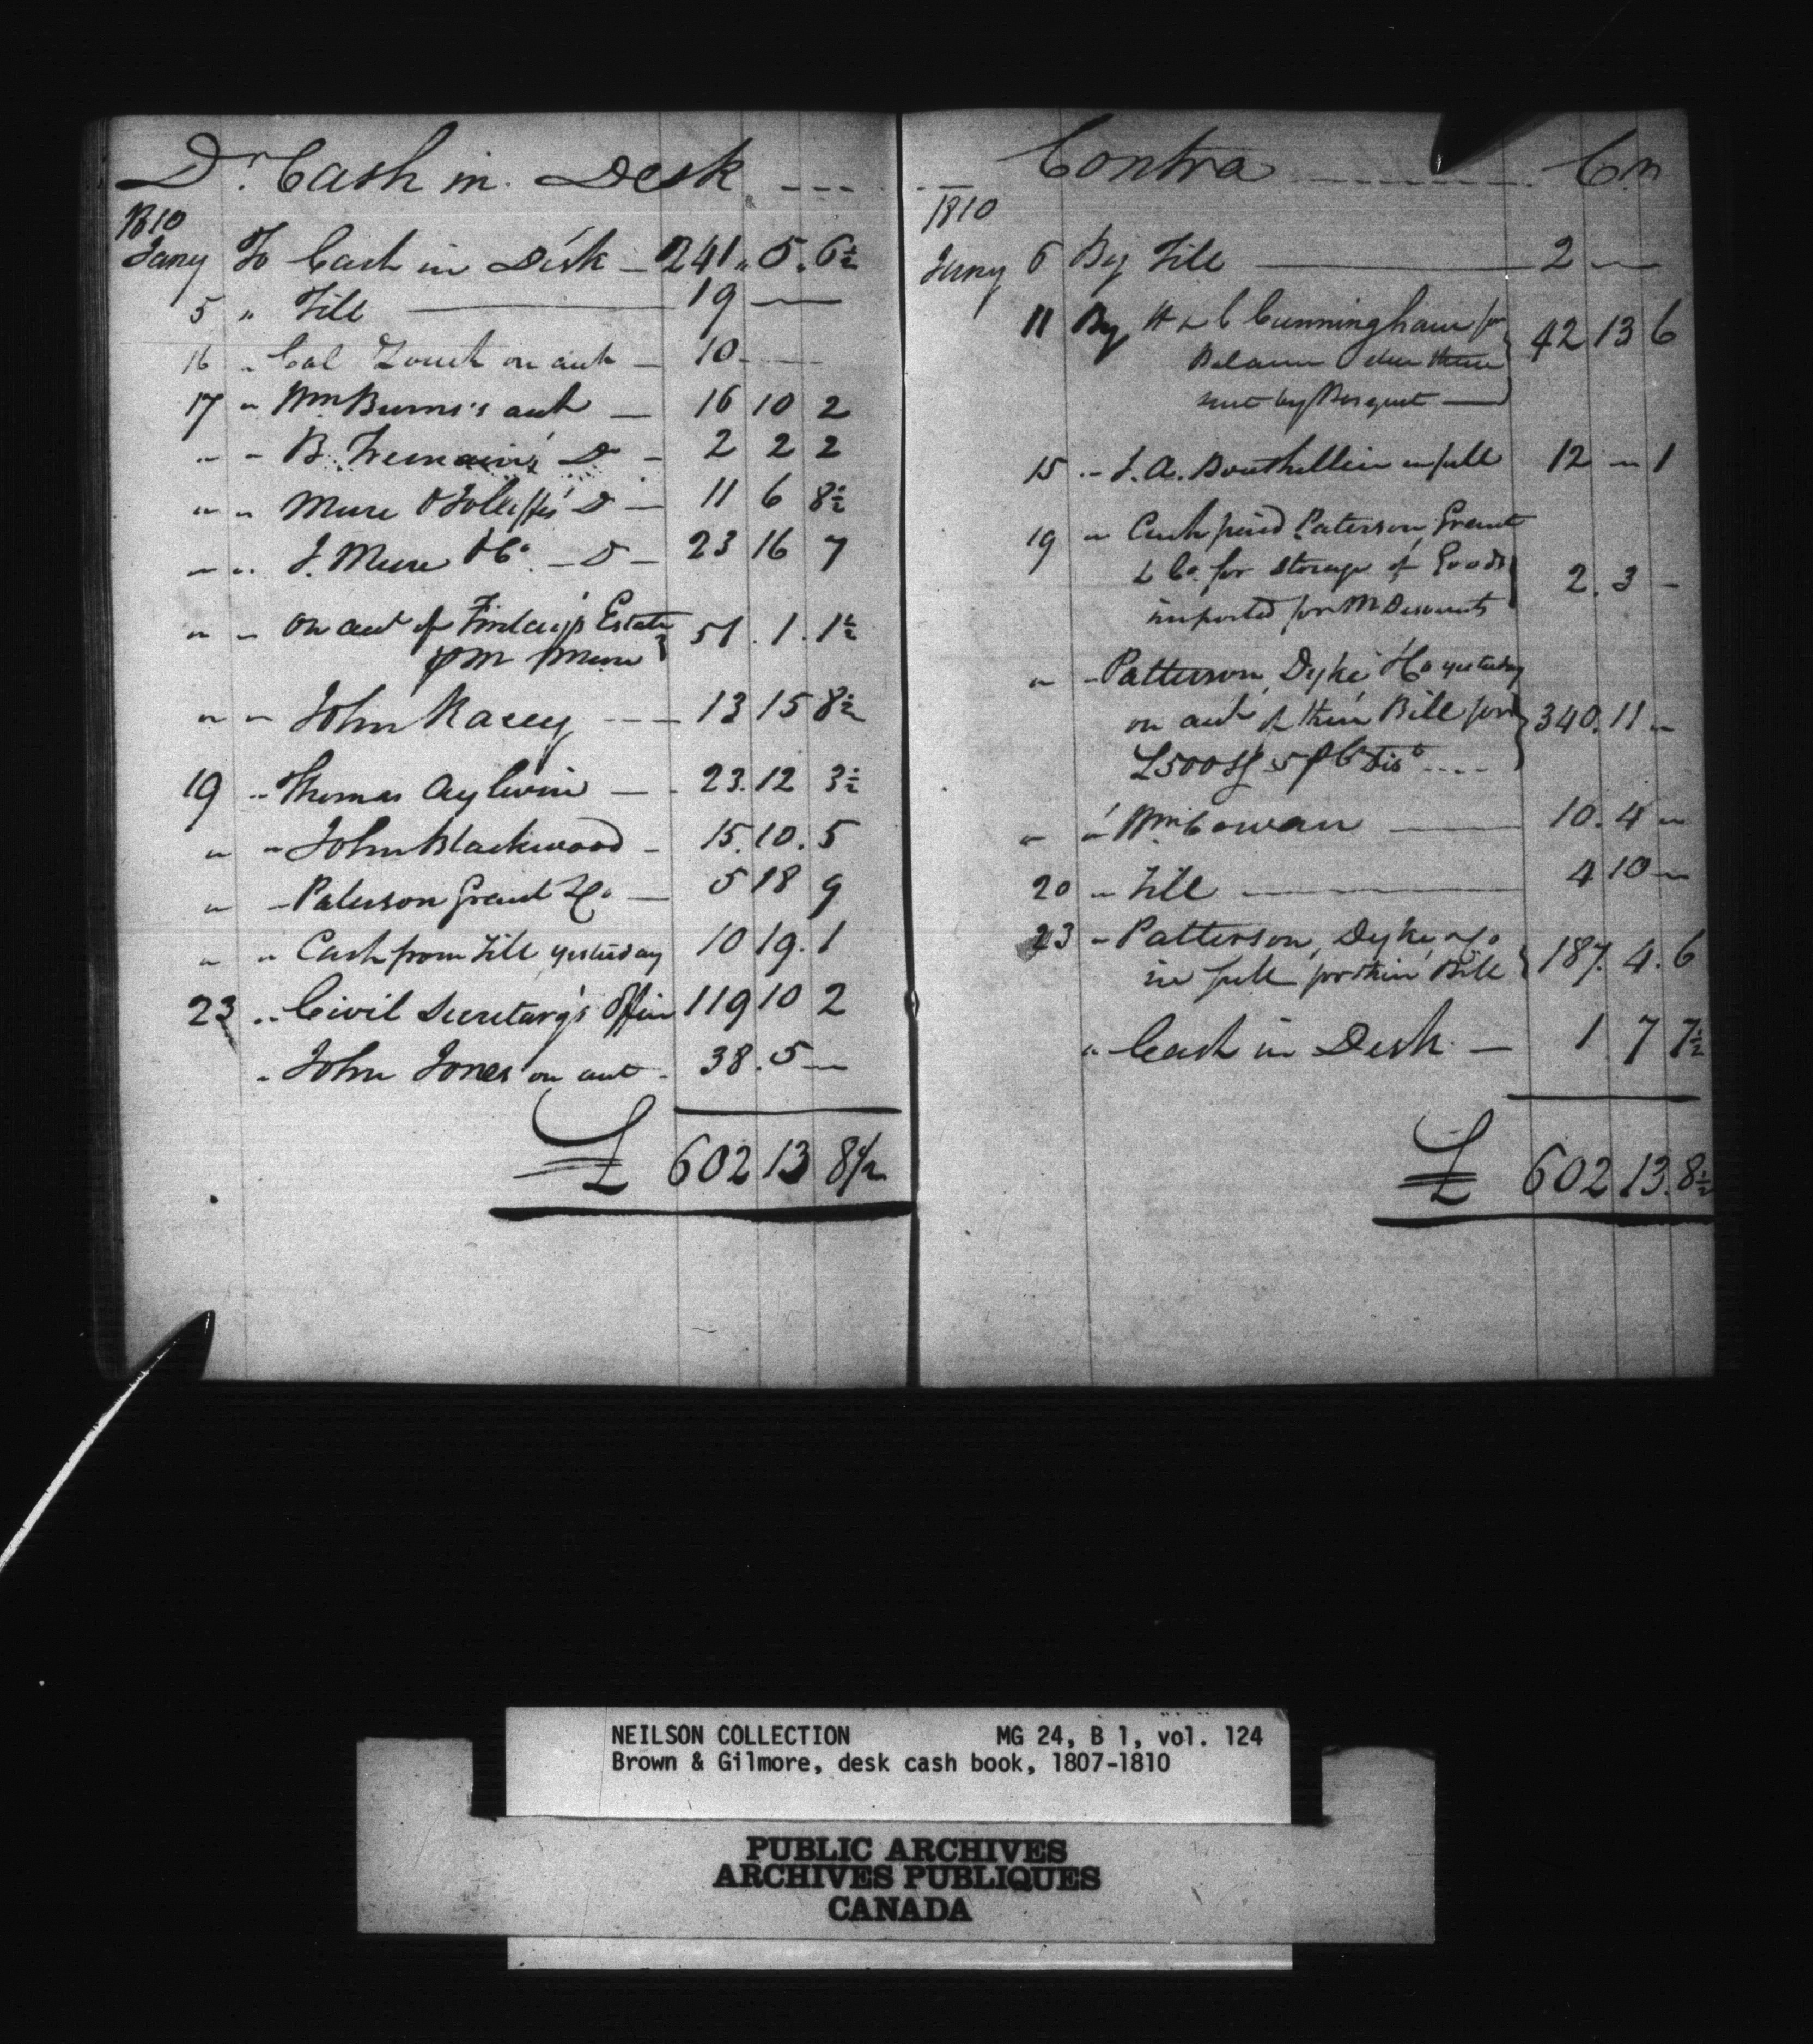 Dr. Cash in Desk
1810
Jany To Cash in Desk 241 " 5 . 6 1/2
5 " Till 19
16 " Col Zouch on acct 10
17 " Wm Burns's acct 16 10 2
" " B. Tremain's Do 2 2 2
" " Mure & Joliffe's Do 11 6 8 1/2
" " J. Mure & Co. Do 23 16 7
" " On acct of Finlay's Estate
51 . 1 . 1 1/2
p Mr Mure
" " John Racey 13 15 8 1/2
19 " Thomas Aylwin 23. 12 3 1/2
" " John Blackwood 15. 10 . 5
" " Paterson Grant & Co 5 18 9
" " Cash from Till yesterday 10 19 . 1
23 " Civil Secretary's Office 119 10 2
" John Jones on acct 38 . 5
£ 602 13 8 1/2
Contra Cr
1810
Jany 6 By Till 2
11 By H & C Cunningham for
Balance due them 42 13 6
sent by Bosquet
15 " J. A. Bouthillier in full 12 " 1
19 " Cash paid Paterson, Grant
& Co. for storage of Goods 2 . 3
imported for Mr
" " Patterson, Dyke & Co yesterday
on acct of their Bill for 340. 11 "
£500 Stg 5 p Ct Dist
" " Wm Cowan 10 . 4 "
20 " Till 4 10
23 " Patterson, Dyke, & Co
in full for their Bill 187. 4 . 6
" Cash in Desk 1 7 7 1/2
£ 602 13 . 8 1/2
NEILSON COLLECTION MG 24, B 1, vol. 124
Brown & Gilmore, desk cash book, 1807-1810
PUBLIC ARCHIVES
ARCHIVES PUBLIQUES
CANADA